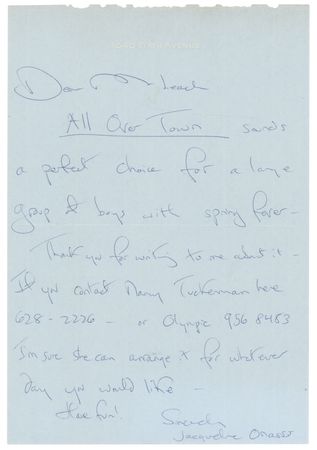 1040 FIFTH AVENUE
Dear Mr Leach
All Over Town sounds
a perfect choice for a large
group of boys with spring fever –
Thank you for writing to me about it –
If you contact Nancy Tuckerman here
628-2226 – or Olympic 956 8483
I'm sure she can arrange it for whatever
day you would like –
Have fun!
Sincerely
Jacqueline Onassis